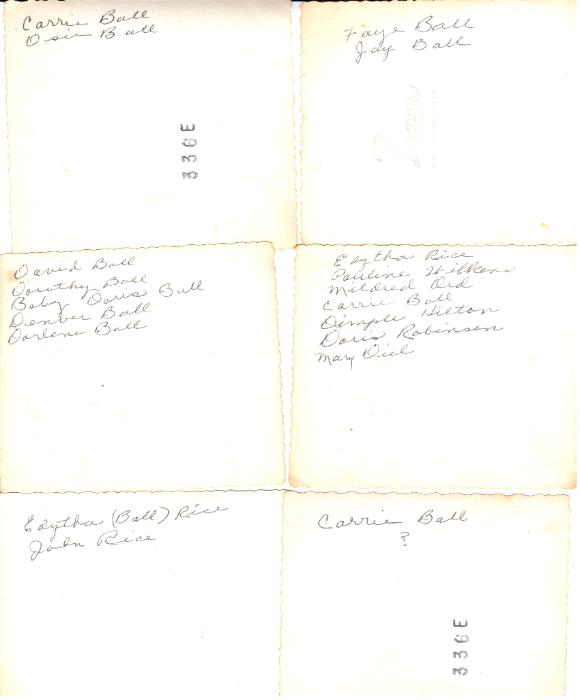 Carrie Ball
Osie Ball
336E
Faye Ball
Jay Ball
David Ball
Dorothy Ball
Baby Doris Ball
Denver Ball
Darlene Ball
Edytha Rice
Pauline Wilkens
Mildred Ord
Carrie Ball
Dimple Hilton
Doris Robinson
Mary Diel
Edytha (Ball) Rice
John Rice
Carrie Ball
?
336E